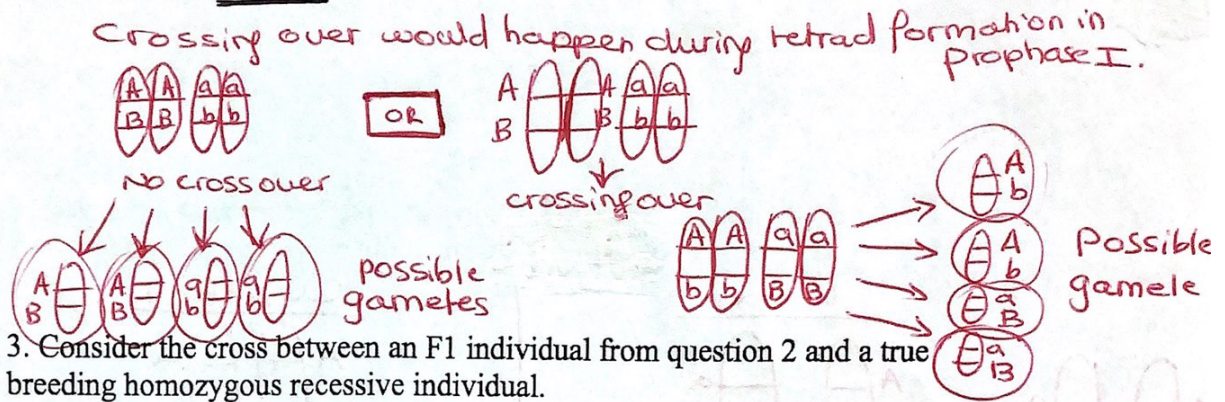 Crossing over would happen during tetrad formation in
prophase I.
A A a a
B B b b
OR
A A a a
B B b b
No crossover
crossing over
A A a a
b b B B
A
B
A
B
a
b
a
b
possible
gametes
A
b
A
b
a
B
a
B
Possible
gamele
3. Consider the cross between an F1 individual from question 2 and a true
breeding homozygous recessive individual.